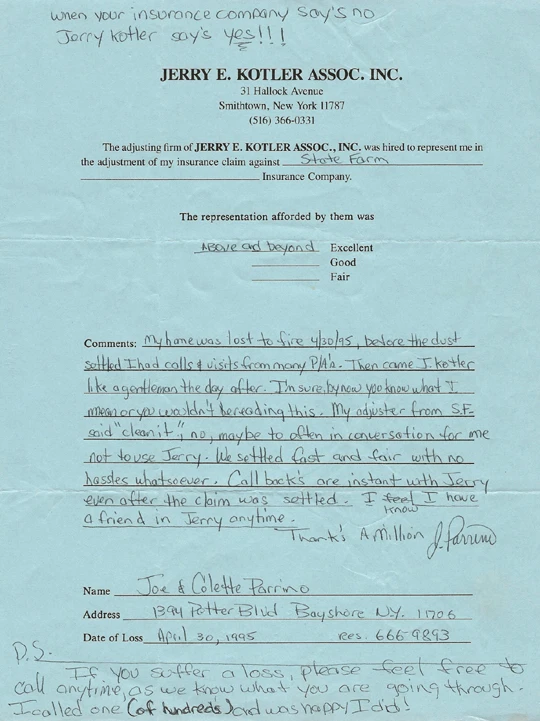 when your insurance company say's no
Jerry Kotler say's yes!!!
JERRY E. KOTLER ASSOC. INC.
31 Hallock Avenue
Smithtown, New York 11787
(516) 366-0331
The adjusting firm of JERRY E. KOTLER ASSOC., INC. was hired to represent me in
the adjustment of my insurance claim against State Farm
Insurance Company.
The representation afforded by them was
Above and beyond Excellent
Good
Fair
Comments: My home was lost to fire 4/30/95, before the dust
settled I had calls & visits from many P/A's. Then came J. Kotler
like a gentleman the day after. I'm sure, by now you know what I
mean or you wouldn't be reading this. My adjuster from S.F.
said "clean it", no, maybe to often in conversation for me
not to use Jerry. We settled fast and fair with no
hassles whatsoever. Call back's are instant with Jerry
even after the claim was settled. I feel I have
know
a friend in Jerry anytime.
Thank's A Million J. Parrino
Name Joe & Colette Parrino
Address 1394 Potter Blvd Bayshore N.Y. 11706
Date of Loss April 30, 1995 res. 666-9893
P.S.
If you suffer a loss, please feel free to
call anytime, as we know what you are going through.
I called one (of hundreds) and was happy I did!